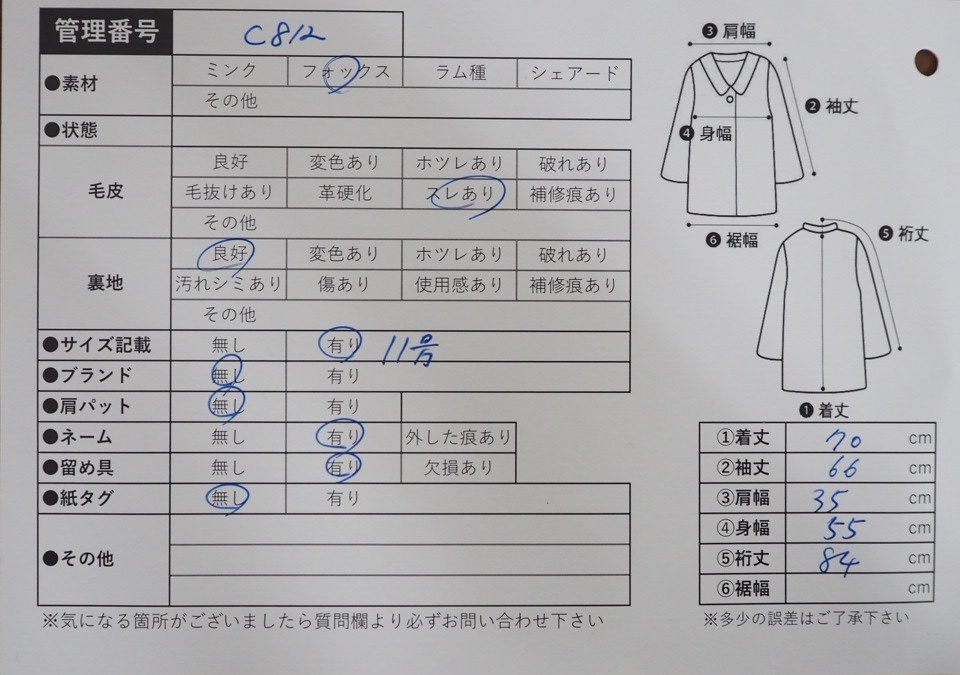 管理番号 C812
●素材 ミンク フォックス ラム種 シェアード
その他
●状態
毛皮 良好 変色あり ホツレあり 破れあり
毛抜けあり 革硬化 スレあり 補修痕あり
その他
裏地 良好 変色あり ホツレあり 破れあり
汚れシミあり 傷あり 使用感あり 補修痕あり
その他
●サイズ記載 無し 有り 11号
●ブランド 無し 有り
●肩パット 無し 有り
●ネーム 無し 有り 外した痕あり
●留め具 無し 有り 欠損あり
●紙タグ 無し 有り
●その他
※気になる箇所がございましたら質問欄より必ずお問い合わせ下さい
❸肩幅
❷袖丈
❹身幅
❻裾幅
❺裄丈
❶着丈
①着丈 70 cm
②袖丈 66 cm
③肩幅 35 cm
④身幅 55 cm
⑤裄丈 84 cm
⑥裾幅 cm
※多少の誤差はご了承下さい